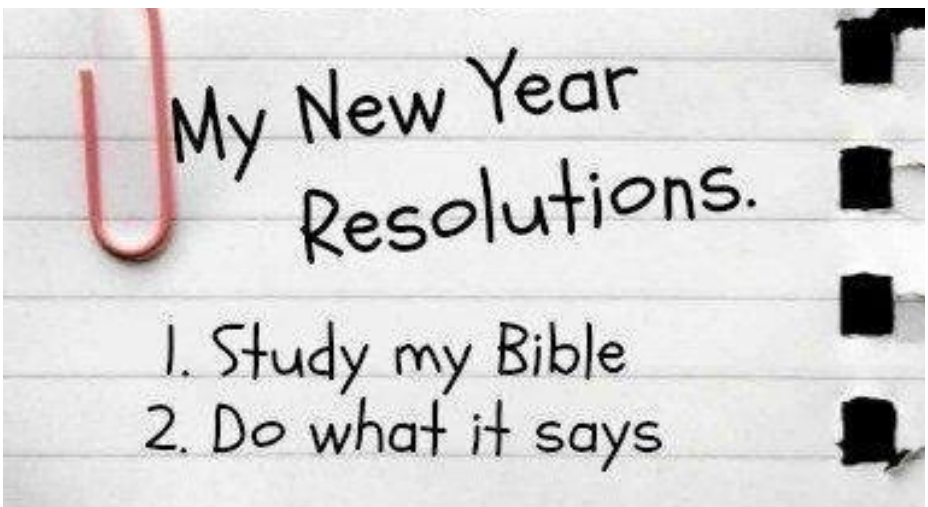 My New Year
Resolutions.
1. Study my Bible
2. Do what it says